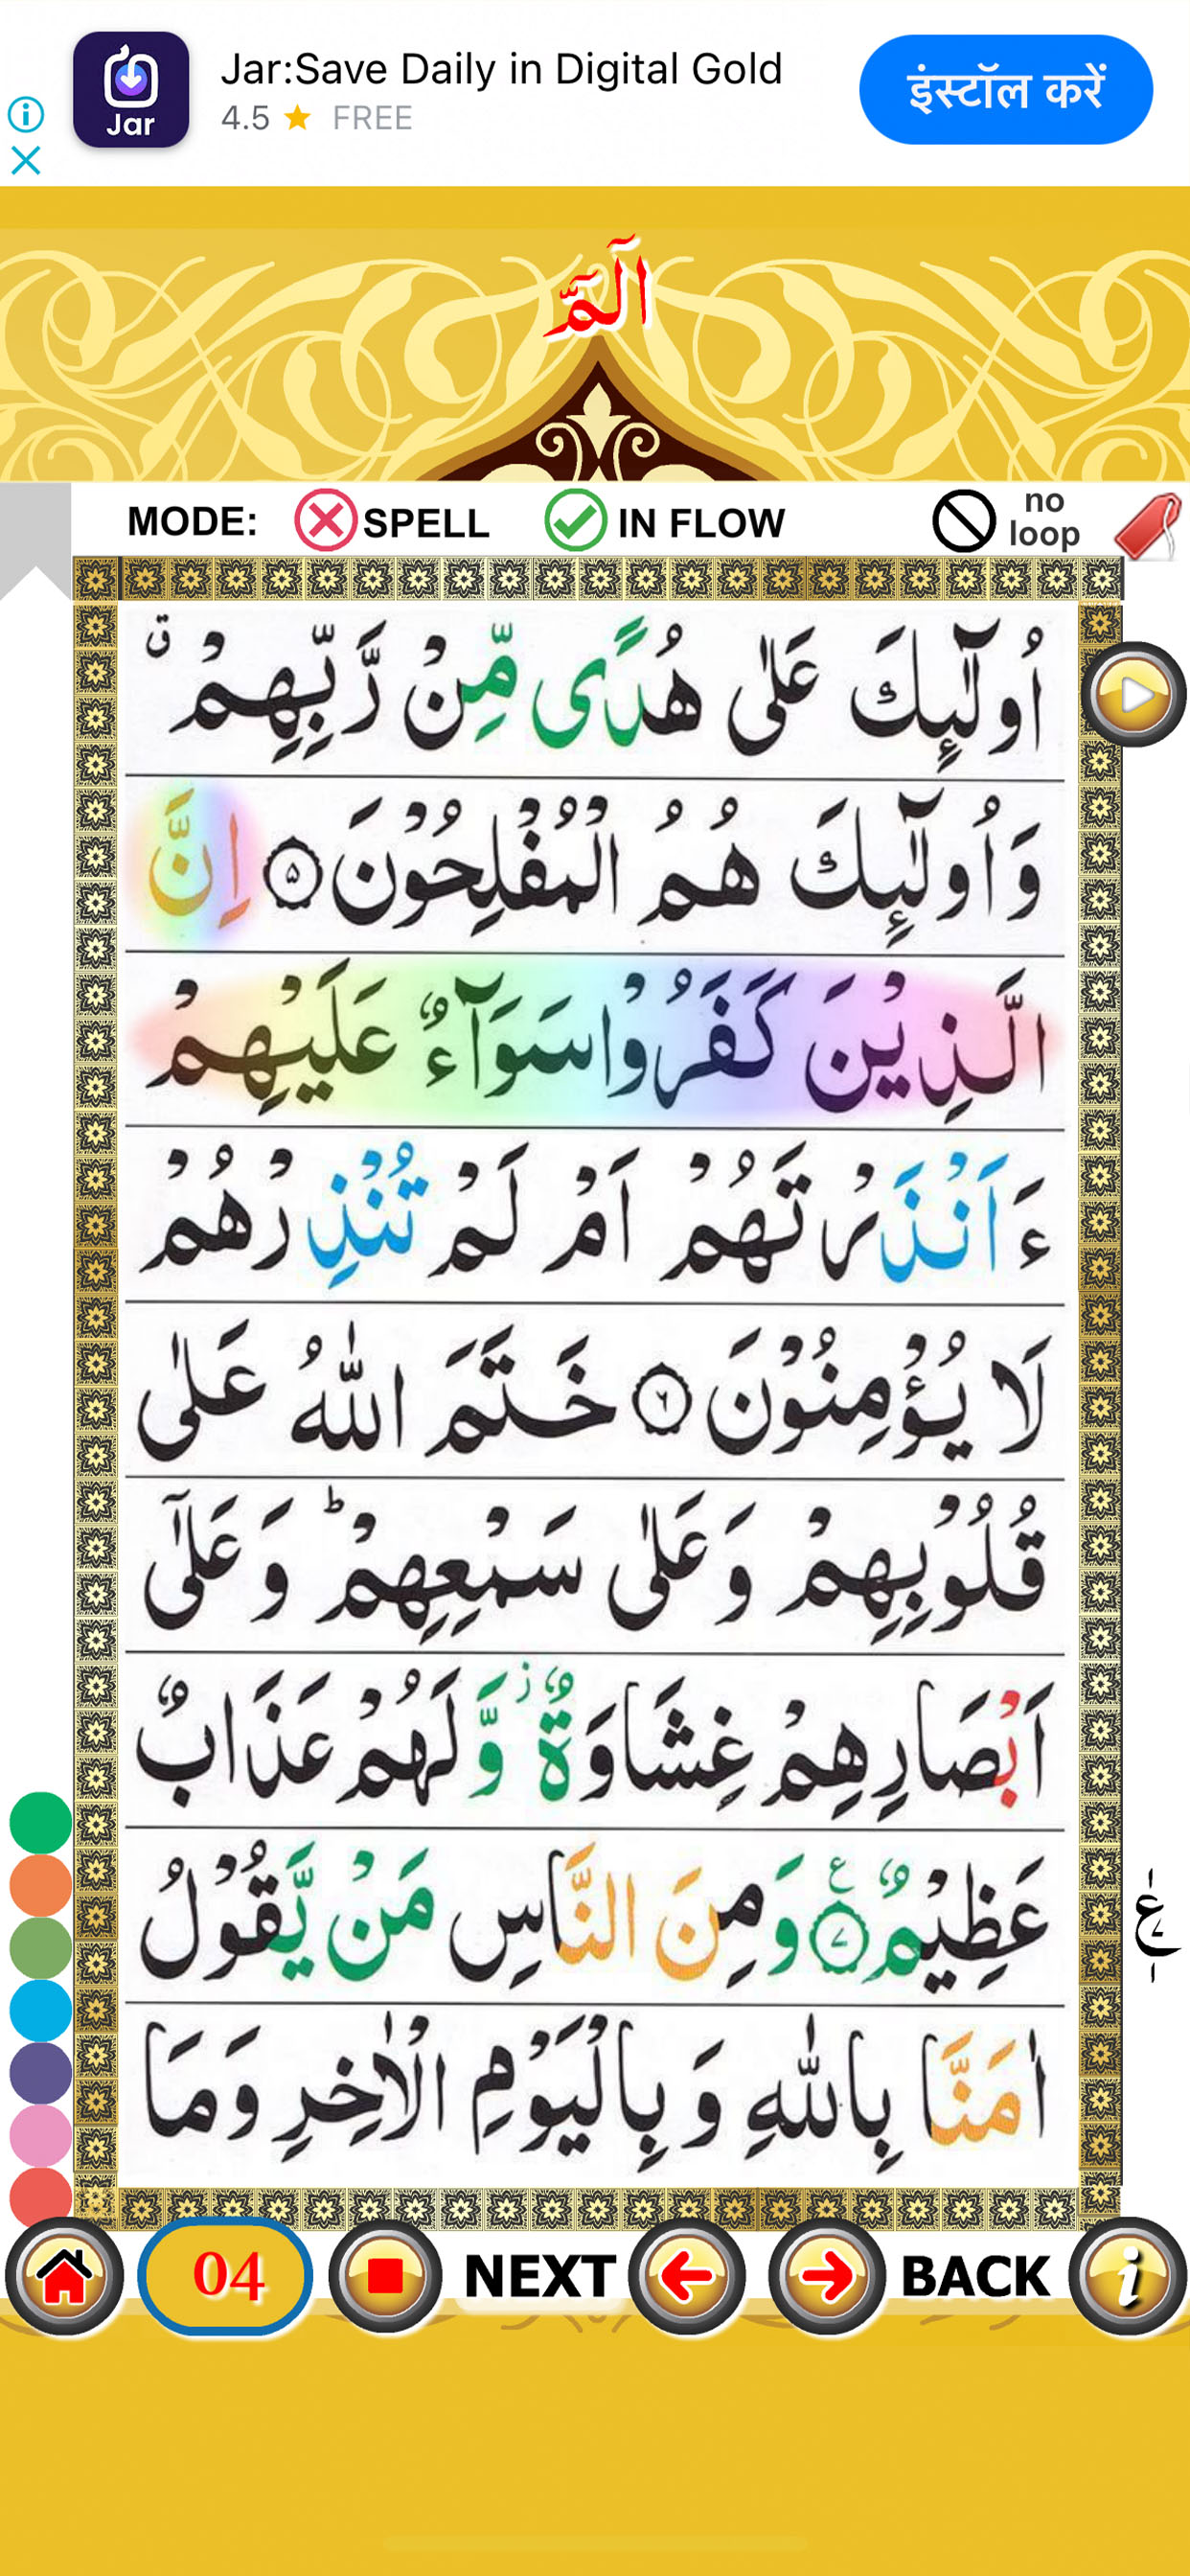 Jar:Save Daily in Digital Gold
4.5 ★ FREE
इंस्टॉल करें
Jar
الٓمّٓ
MODE: SPELL IN FLOW no loop
اُولٰٓئِكَ عَلٰى هُدًى مِّنْ رَّبِّهِمْ ۙ
وَاُولٰٓئِكَ هُمُ الْمُفْلِحُوْنَ ۵ اِنَّ
الَّذِيْنَ كَفَرُوْا سَوَآءٌ عَلَيْهِمْ
ءَاَنْذَرْتَهُمْ اَمْ لَمْ تُنْذِرْهُمْ
لَا يُؤْمِنُوْنَ ۶ خَتَمَ اللّٰهُ عَلٰى
قُلُوْبِهِمْ وَعَلٰى سَمْعِهِمْ ؕ وَعَلٰٓى
اَبْصَارِهِمْ غِشَاوَةٌ ز وَّلَهُمْ عَذَابٌ
عَظِيْمٌ ۷ ع وَمِنَ النَّاسِ مَنْ يَّقُوْلُ
ع
اٰمَنَّا بِاللّٰهِ وَبِالْيَوْمِ الْاٰخِرِ وَمَا
04 NEXT BACK i